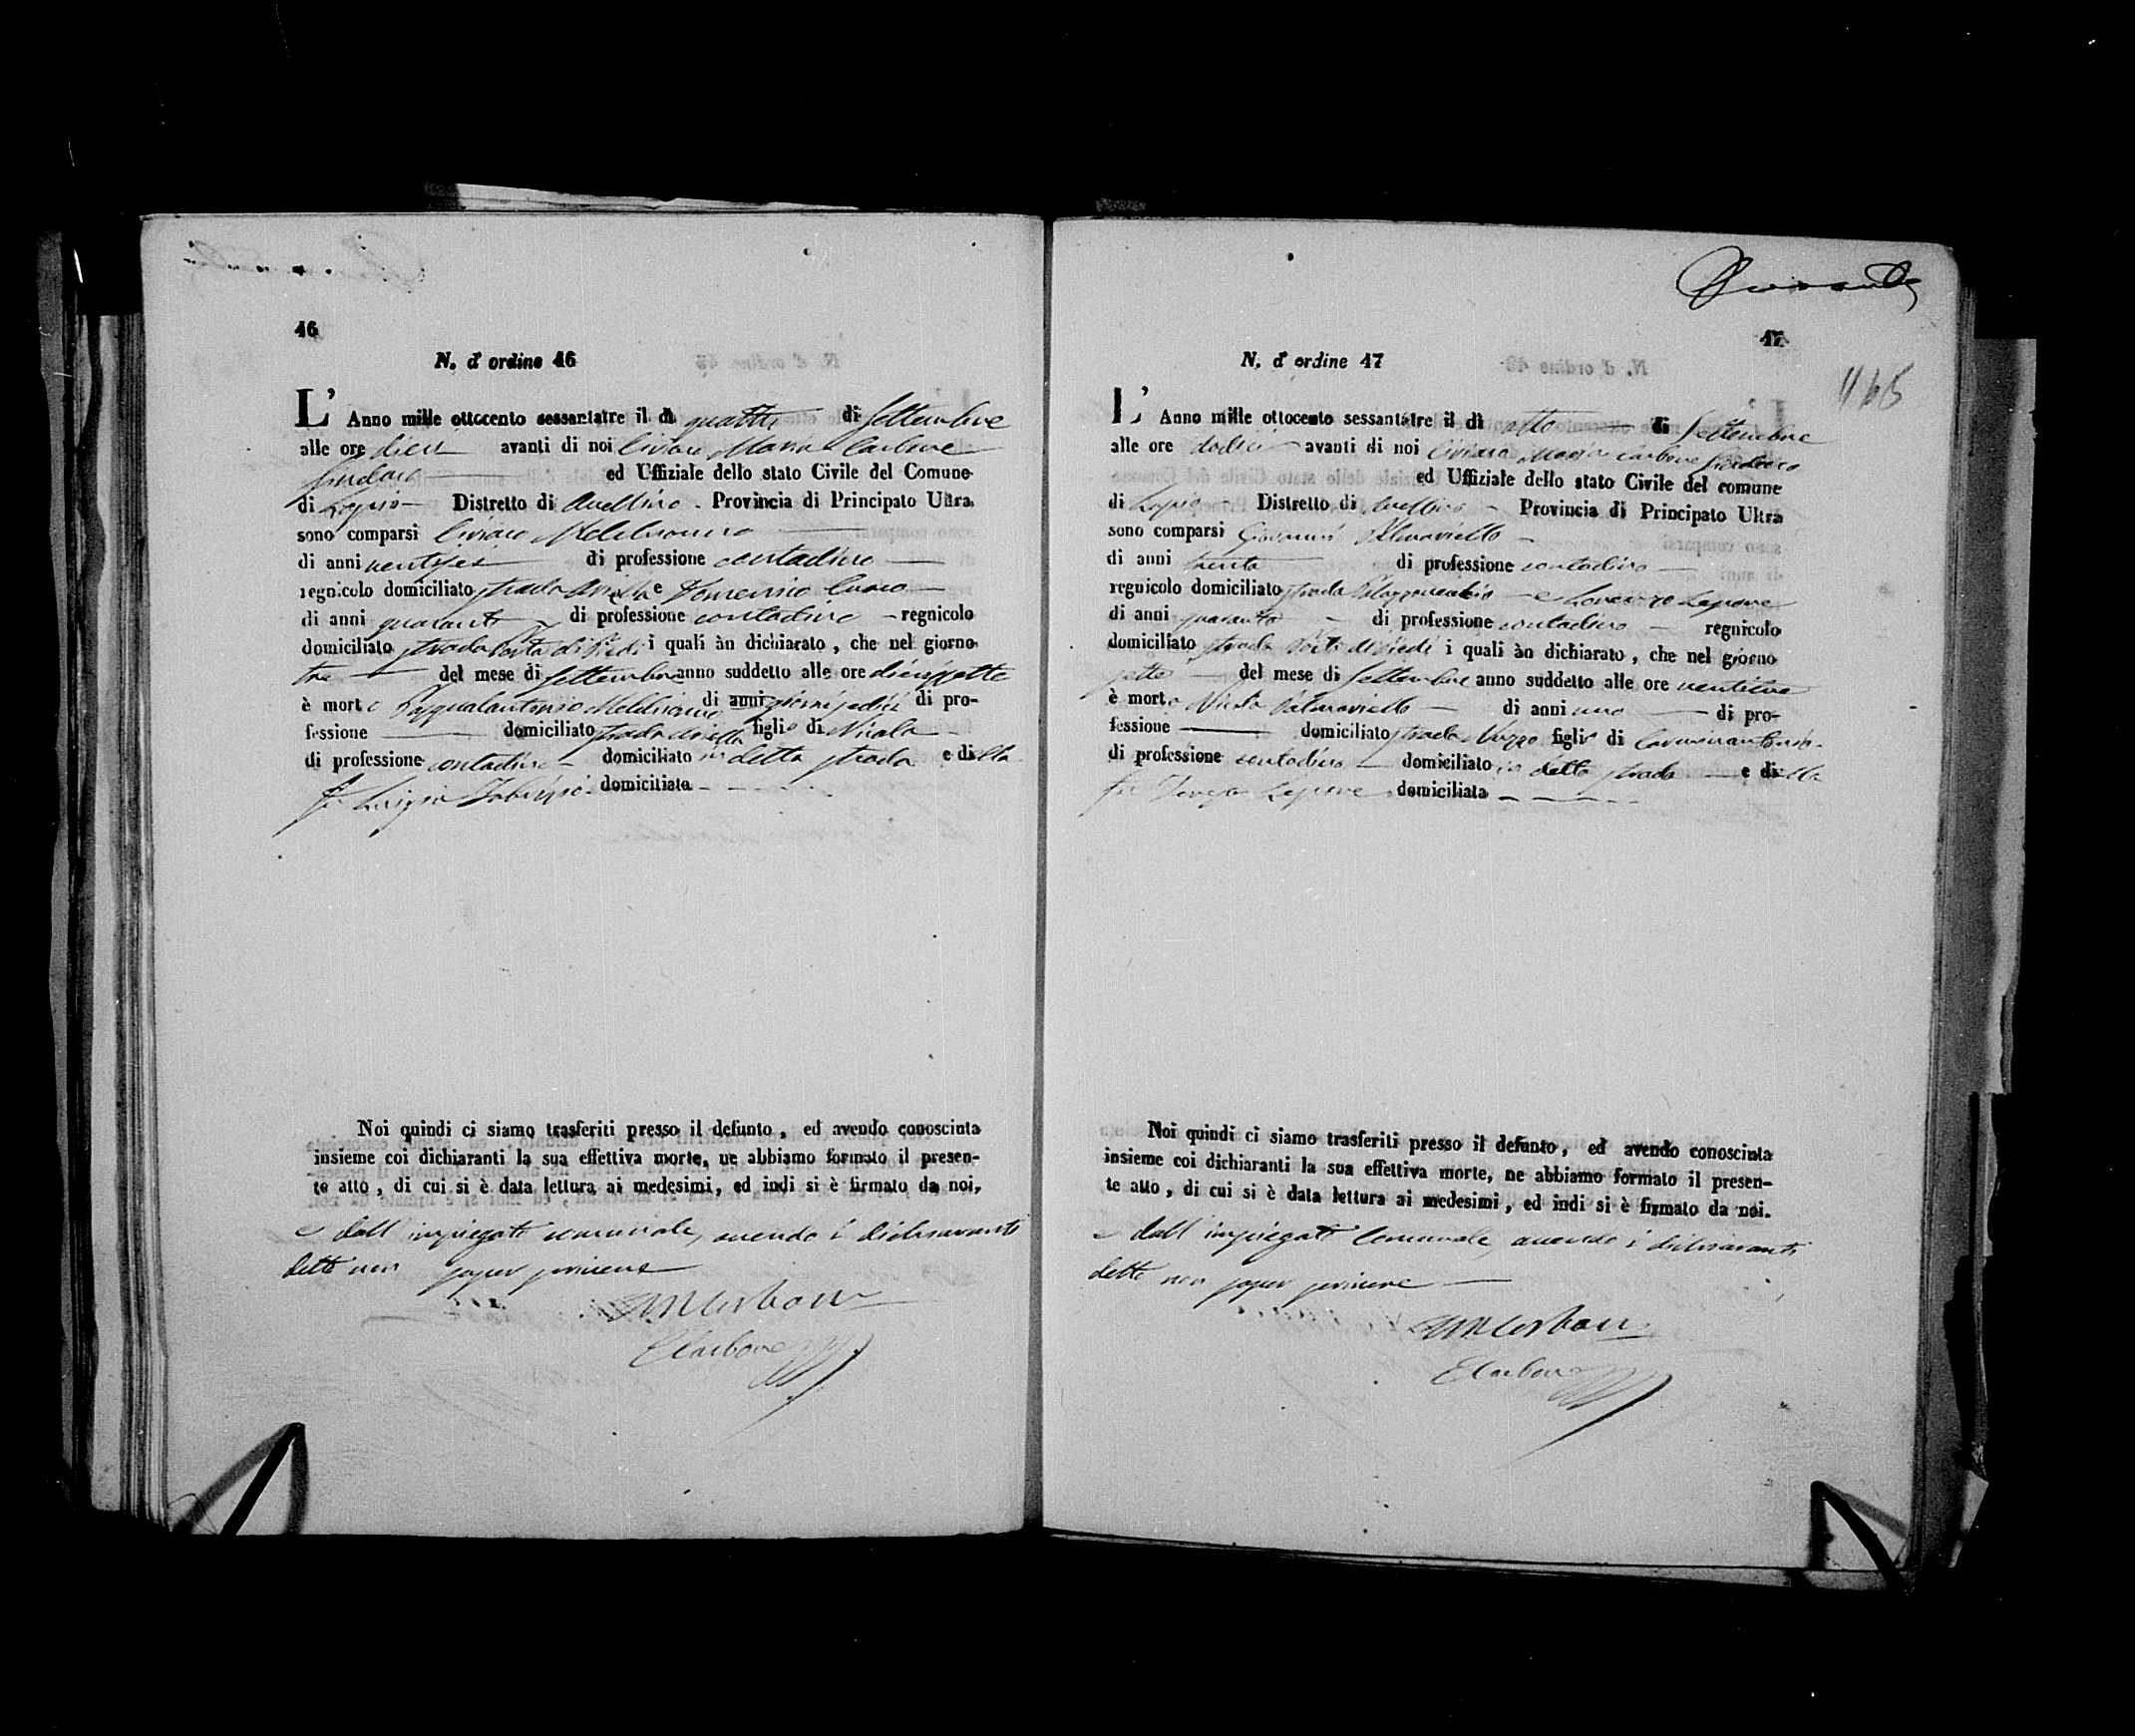 46
N. d' ordine 46
L' Anno mille ottocento sessantatre il dì quattro di Settembre
alle ore dieci avanti di noi Ciriaco Maria Carbone
Sindaco ed Uffiziale dello stato Civile del Comune
di Lapio Distretto di Avellino Provincia di Principato Ultra
sono comparsi Ciriaco
di anni ventisei di professione contadino
regnicolo domiciliato strada e Domenico
di anni quaranta di professione contadino regnicolo
domiciliato strada Porta di Piedi i quali àn dichiarato, che nel giorno
tre del mese di Settembre anno suddetto alle ore diecissette
è morto Pasqualantonio di anni giorni sedici di pro-
fessione domiciliato strada figlio di Nicola
di professione contadino domiciliato in detta strada e di
fu domiciliata
Noi quindi ci siamo trasferiti presso il defunto, ed avendo conosciuta
insieme coi dichiaranti la sua effettiva morte, ne abbiamo formato il presen-
te atto, di cui si è data lettura ai medesimi, ed indi si è firmato da noi,
e dall' impiegato comunale, avendo i dichiaranti
detto non saper scrivere
CMCarbone
ECarbone
47
N. d' ordine 47
L' Anno mille ottocento sessantatre il dì otto di Settembre
alle ore dodici avanti di noi Ciriaco Maria Carbone Sindaco
ed Uffiziale dello stato Civile del comune
di Lapio Distretto di Avellino Provincia di Principato Ultra
sono comparsi Giovanni Palmariello
di anni trenta di professione contadino
regnicolo domiciliato strada e Lorenzo Lepore
di anni quaranta di professione contadino regnicolo
domiciliato strada Porta di Piedi i quali àn dichiarato, che nel giorno
sette del mese di Settembre anno suddetto alle ore
è morto Palmariello di anni uno di pro-
fessione domiciliato strada figlio di Carminantonio
di professione contadino domiciliato in detta strada e di
fu Lepore domiciliata
Noi quindi ci siamo trasferiti presso il defunto, ed avendo conosciuta
insieme coi dichiaranti la sua effettiva morte, ne abbiamo formato il presen-
te atto, di cui si è data lettura ai medesimi, ed indi si è firmato da noi.
e dall' impiegato Comunale, avendo i dichiaranti
detto non saper scrivere
CMCarbone
ECarbone